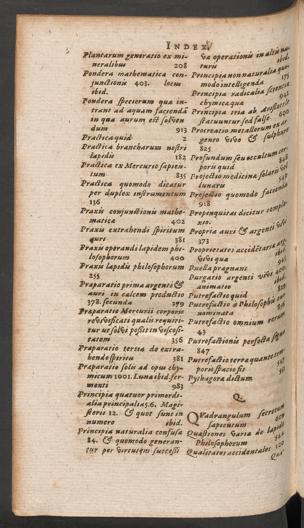 INDEX.
Plantarum generatio ex mi-
neralibus 208
Pondera mathematica con-
junctionis 403. locus
ibid.
Pondera specierum qua in-
trant ad aquam faciendã
in qua aurum est solven
dum 913
Practica quid 2
Practica brancharum nostri
lapidis 182
Practica ex Mercurio sapien-
tum 835
Practica quomodo dicatur
per duplex instrumentum
136
Praxis conjunctionis mathe-
matica 402
Praxis extrahendi spiritum
auri 381
Praxis operandi lapidem phi-
losophorum 400
Praxis lapidis philosophorum
255
Præparatio prima argenti &
auri in calcem productio
378. secunda 379
Præparatio Mercurii corporis
revivificati qualis requiri-
tur ut solvi possit in viscosi-
tatem 356
Præparatio tertia de extra-
hendo spiritu 381
Præparatio solis ad opus chy-
micum 1001. Lunæ ibid. fer-
menti 983
Principia quatuor primordi-
alia principalia 5. 6. Magi-
sterii 12. & quot sunt in
numero ibid.
Principia naturalia confusa
84. & quomodo generan-
tur per virtutem successi
væ operationis in altri
ibid.
Principia non naturalia quo-
modo intelligenda 175
Principia radicalia
chymica qua
Principia tria ab
statuuntur sed falso
Procreatio metallorum ex ar-
gento vivo & sulphure
825
Profundum seu occultum cor-
poris quid
Projectio medicina solaris
lunaris
Projectio quomodo facienda
918
Propinquitas dicitur
xio.
Propria auri & argenti
373
Proprietates accidétaria
vivo qua
Puella prægnans
Purgatio argenti vivi
animatio
Putrefactio quid
Putrefactio à Philosophis
nominata
Putrefactio omnium
43
Putrefactionis perfecta
847
Putrefactio terra quanto tem-
poris spacio fit
Pythagora dictum
Q.
QUadrangulum secretum
sapientum
Quæstiones varia de lapide
Philosophorum
Qualitates accidentales